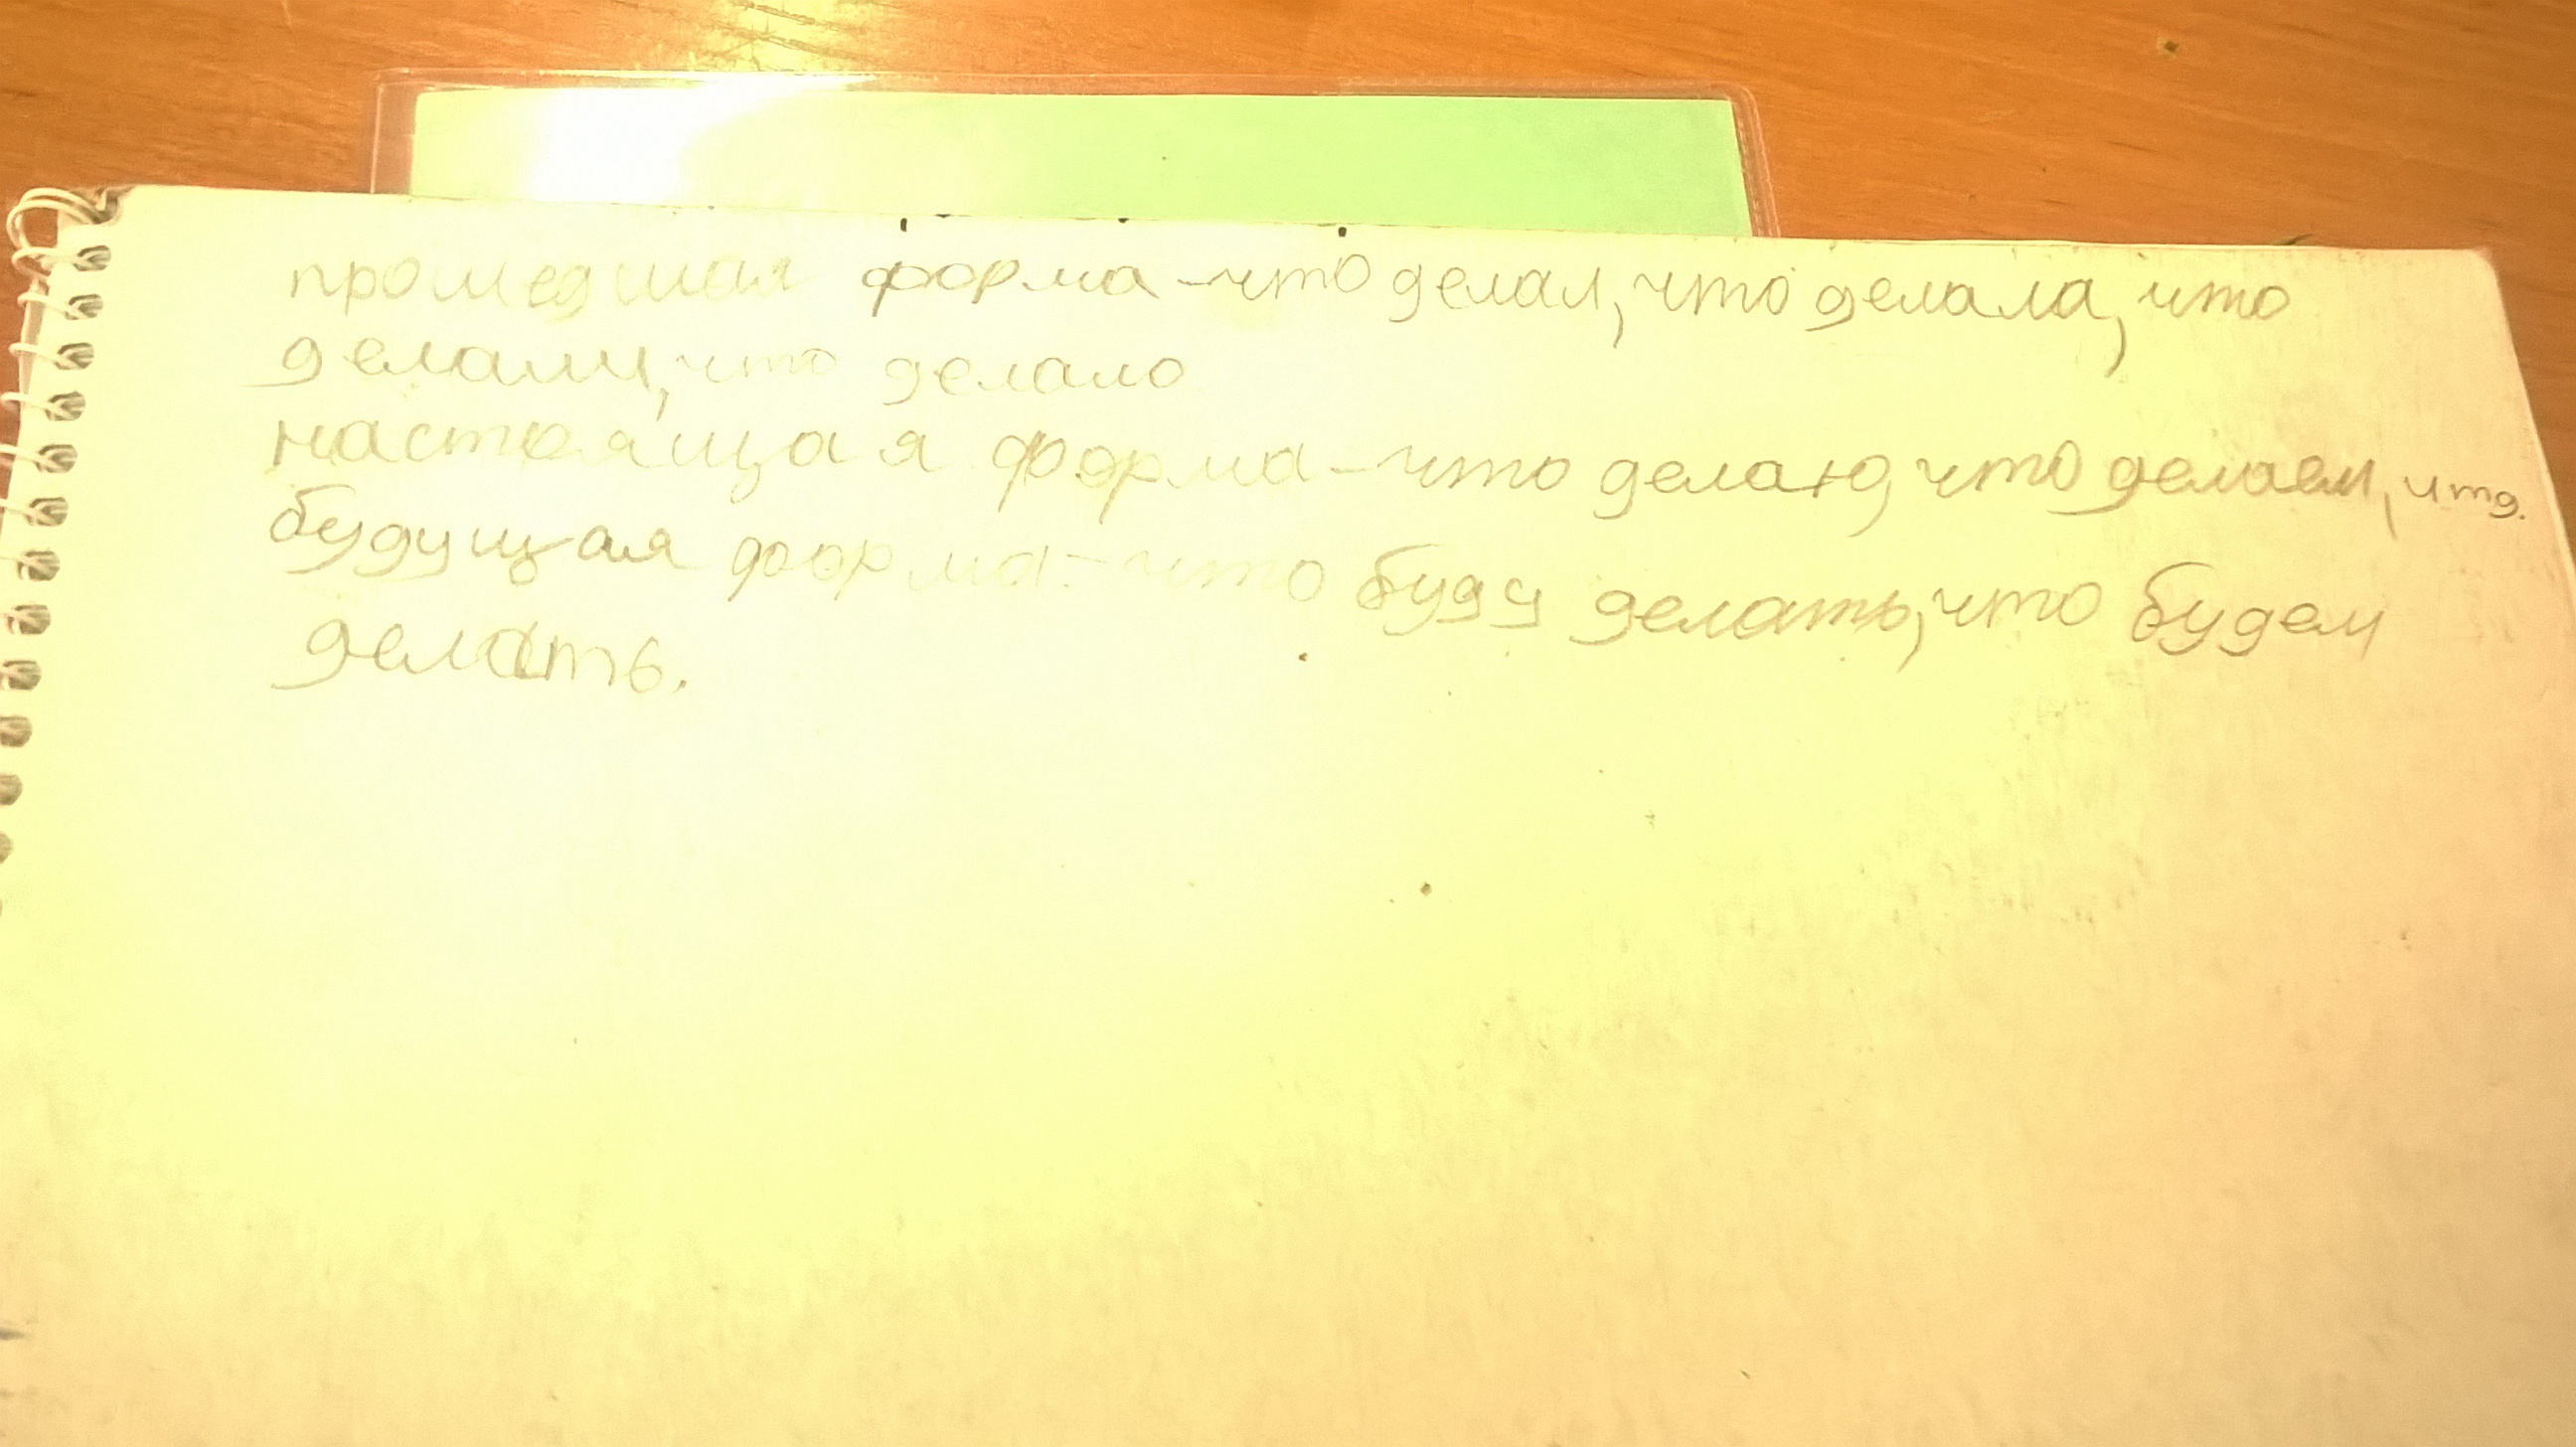 прошедшая форма - что делал, что делала, что
делали, что делало
настоящая форма - что делаю, что делаем, итд.
будущая форма - что буду делать, что будем
делать.